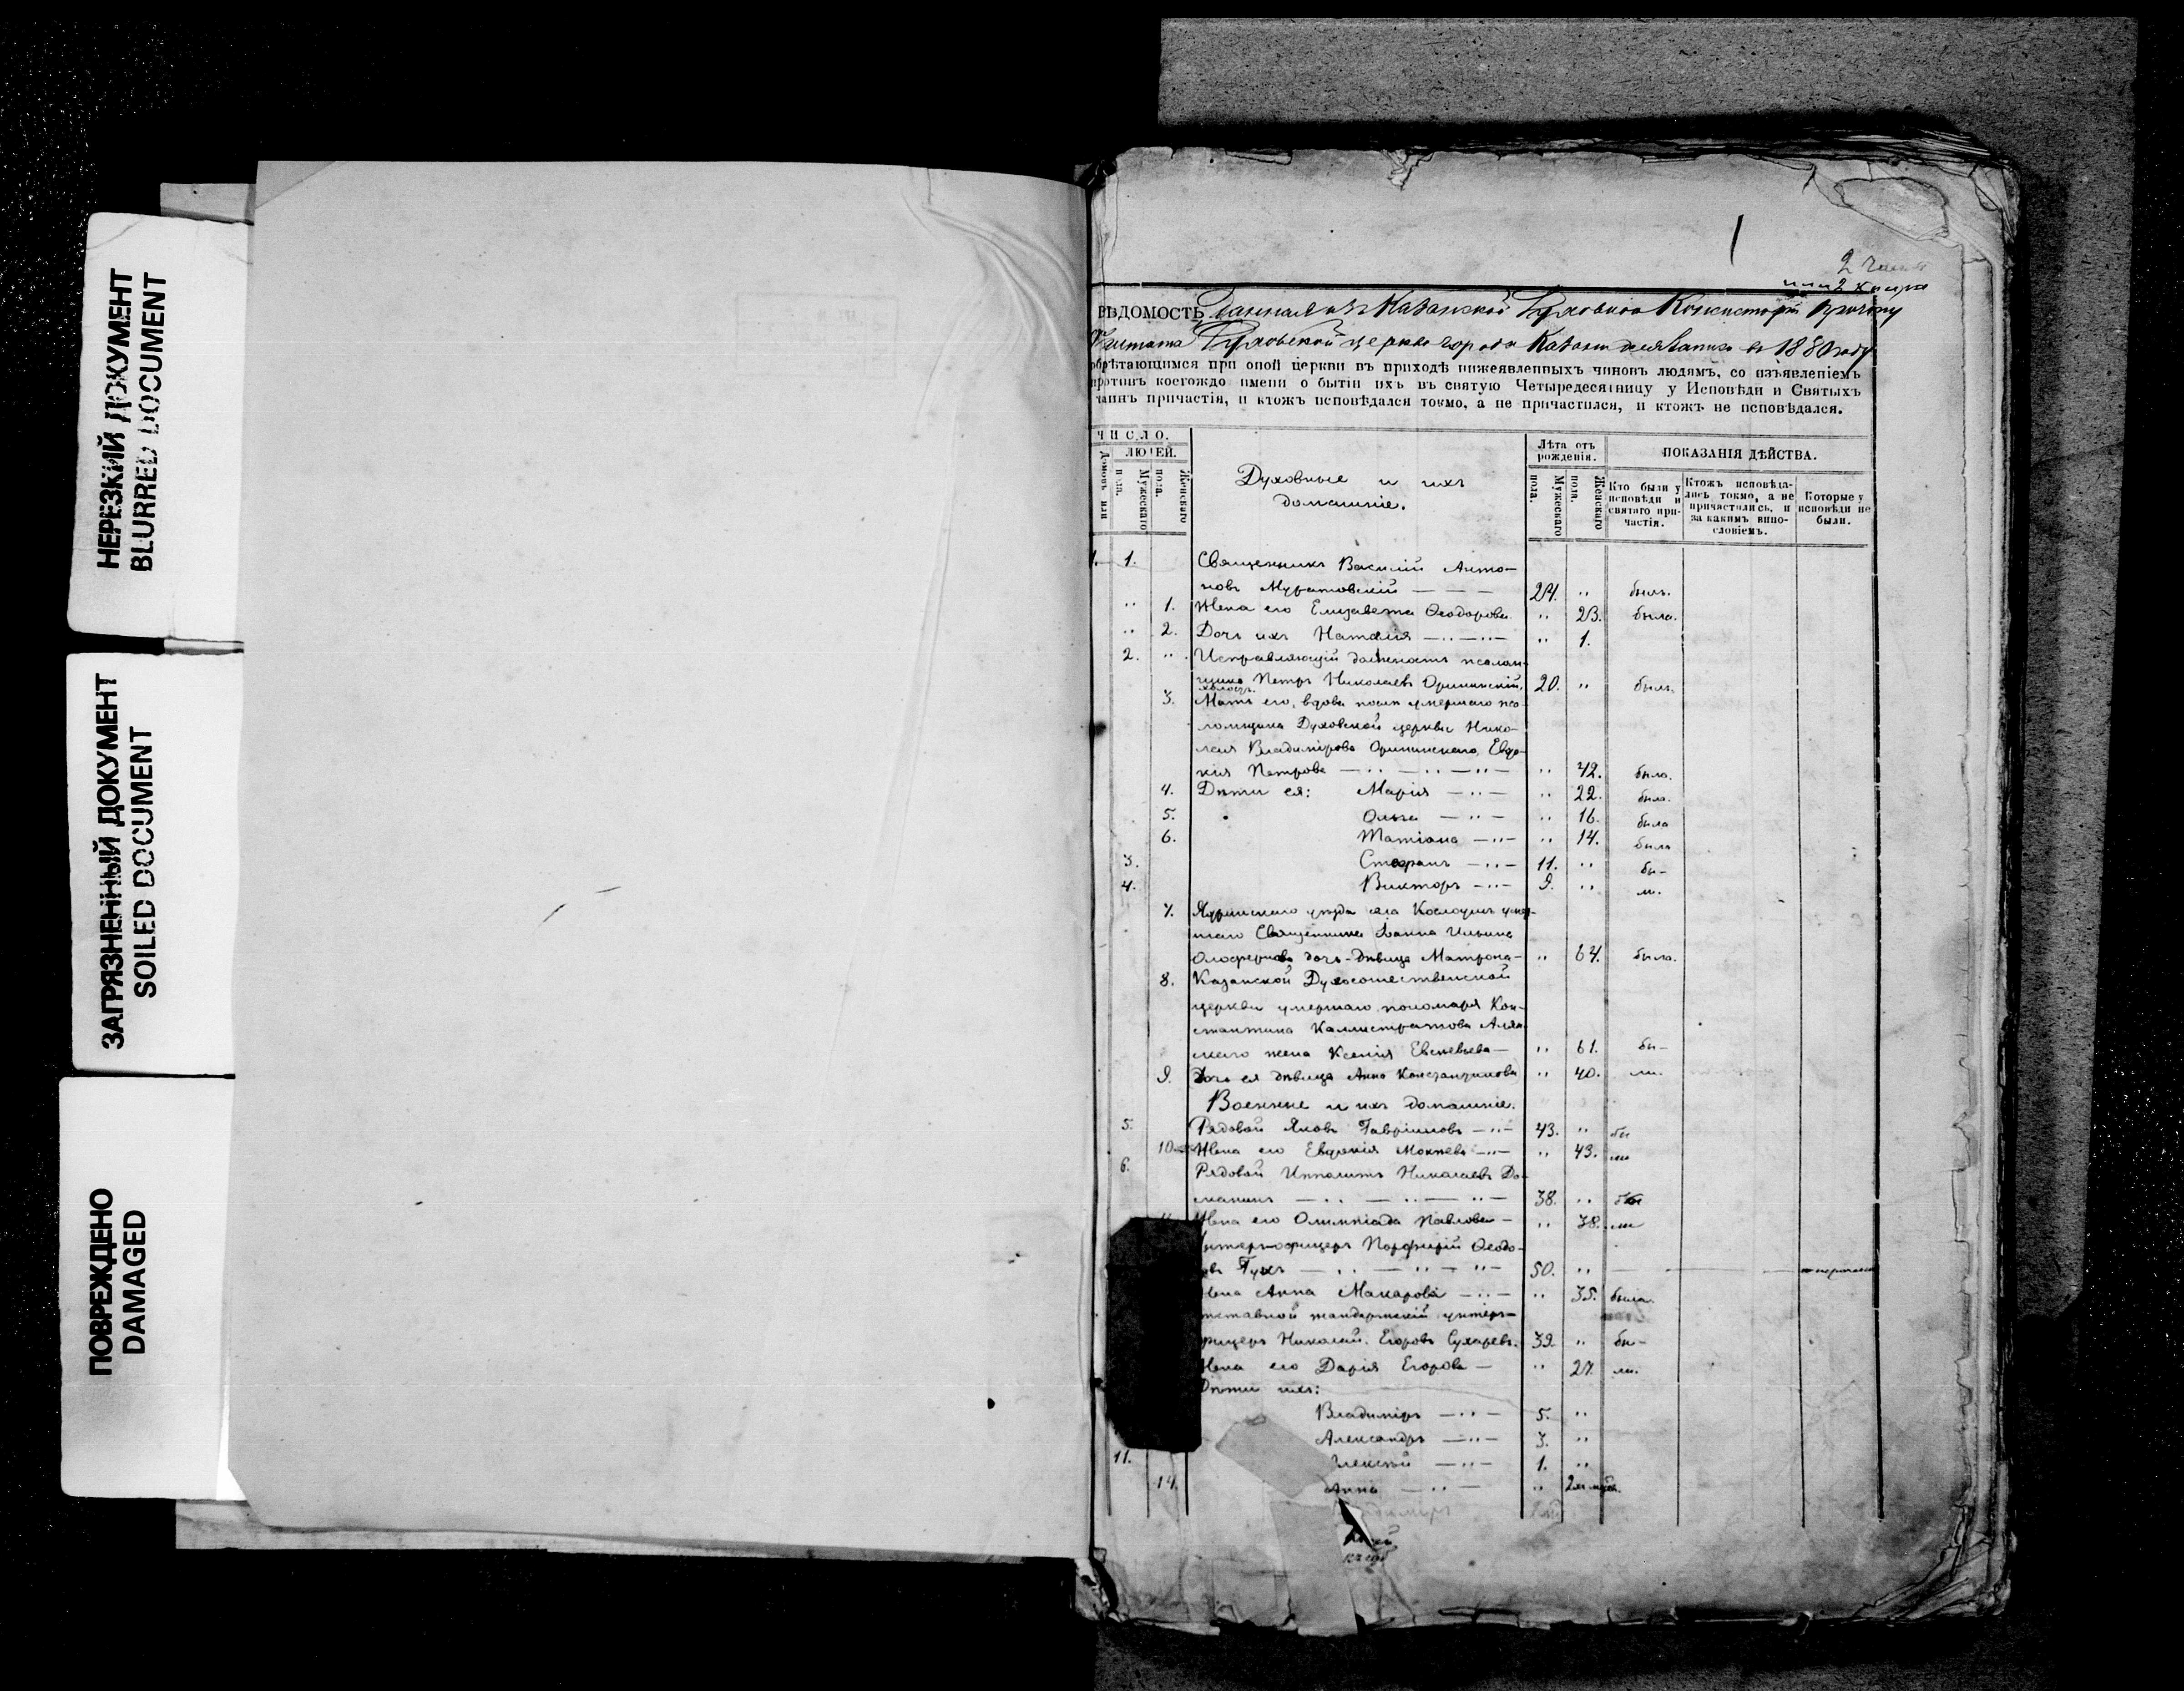 НЕРЕЗКИЙ ДОКУМЕНТ
BLURRED DOCUMENT
ЗАГРЯЗНЕННЫЙ ДОКУМЕНТ
SOILED DOCUMENT
ПОВРЕЖДЕНО
DAMAGED
1
2
ВѢДОМОСТЬ Данная изъ Казанской Духовной Консисторіи причту
Духовской церкви города Казани для записи въ 1880 году
обрѣтающимся при оной церкви въ приходѣ нижеявленныхъ чиновъ людямъ, со изъявленіемъ
противъ коегождо имени о бытіи ихъ въ святую Четыредесятницу у Исповѣди и Святыхъ
таинъ причастія, и ктожъ исповѣдался токмо, а не причастился, и ктожъ не исповѣдался.
ЧИСЛО.
ЛЮДЕЙ.
Домовъ или
Мужескаго пола.
Женскаго пола.
Духовные и ихъ
домашніе.
Лѣта отъ рожденія.
Мужескаго пола.
Женскаго пола.
ПОКАЗАНІЯ ДѢЙСТВА.
Кто были у исповѣди и святаго причастія.
Ктожъ исповѣдались токмо, а не причастились, и за какимъ винословіемъ.
Которые у исповѣди не были.
1. 1. Священникъ Василій Анто-
новъ Муратовскій — — — 24. " былъ.
" 1. Жена его Елизавета Ѳеодорова " 23. была.
" 2. Дочь ихъ Наталія — " — " — " 1.
2. " Исправляющій должность псалом-
щика Петръ Николаевъ 20. " былъ.
холостъ.
3. Мать его, вдова послѣ умершаго пса-
ломщика Духовской церкви Нико-
лая Владимірова Евдо-
кія Петрова — " — " — " — " 42. была.
4. Дѣти ея: Марія — " — " 22. была.
5. Ольга — " — " 16. была
6. Татіана — " — " 14. была
3. Стефанъ — " — 11. " бы-
4. Викторъ — " — 9. " ли.
7. Ядринскаго уѣзда села умер-
шаго Священника Іоанна Ильина
дочь-дѣвица Матрона — " 64. была.
8. Казанской Духосошественской
церкви умершаго пономаря Кон-
стантина Каллистратова
жена Ксенія Евсевьева — " 61. бы-
9. Дочь ея дѣвица Анна Константинова " 40. ли.
Военные и ихъ домашніе.
5. Рядовой Яковъ Гавріиловъ — " — 43. " бы
10. Жена его Евдокія — " — " 43. ли
6. Рядовой Ипполитъ Николаевъ До-
— " — " — " — 38. " бы
Жена его Олимпіада Павлова — " 38. ли
унтеръ-офицеръ Порфирій Ѳеодо-
— " — " — " — 50. "
Жена Анна Макарова — " — " 35. была.
отставной жандармскій унтеръ-
офицеръ Николай Егоровъ Сухаревъ. 39. " бы-
Жена его Дарія Егорова — " 27. ли.
Дѣти ихъ:
Владиміръ — " — 5. "
Александръ — " — 3. "
11. Алексѣй — " — 1. "
14. Анна — " — "